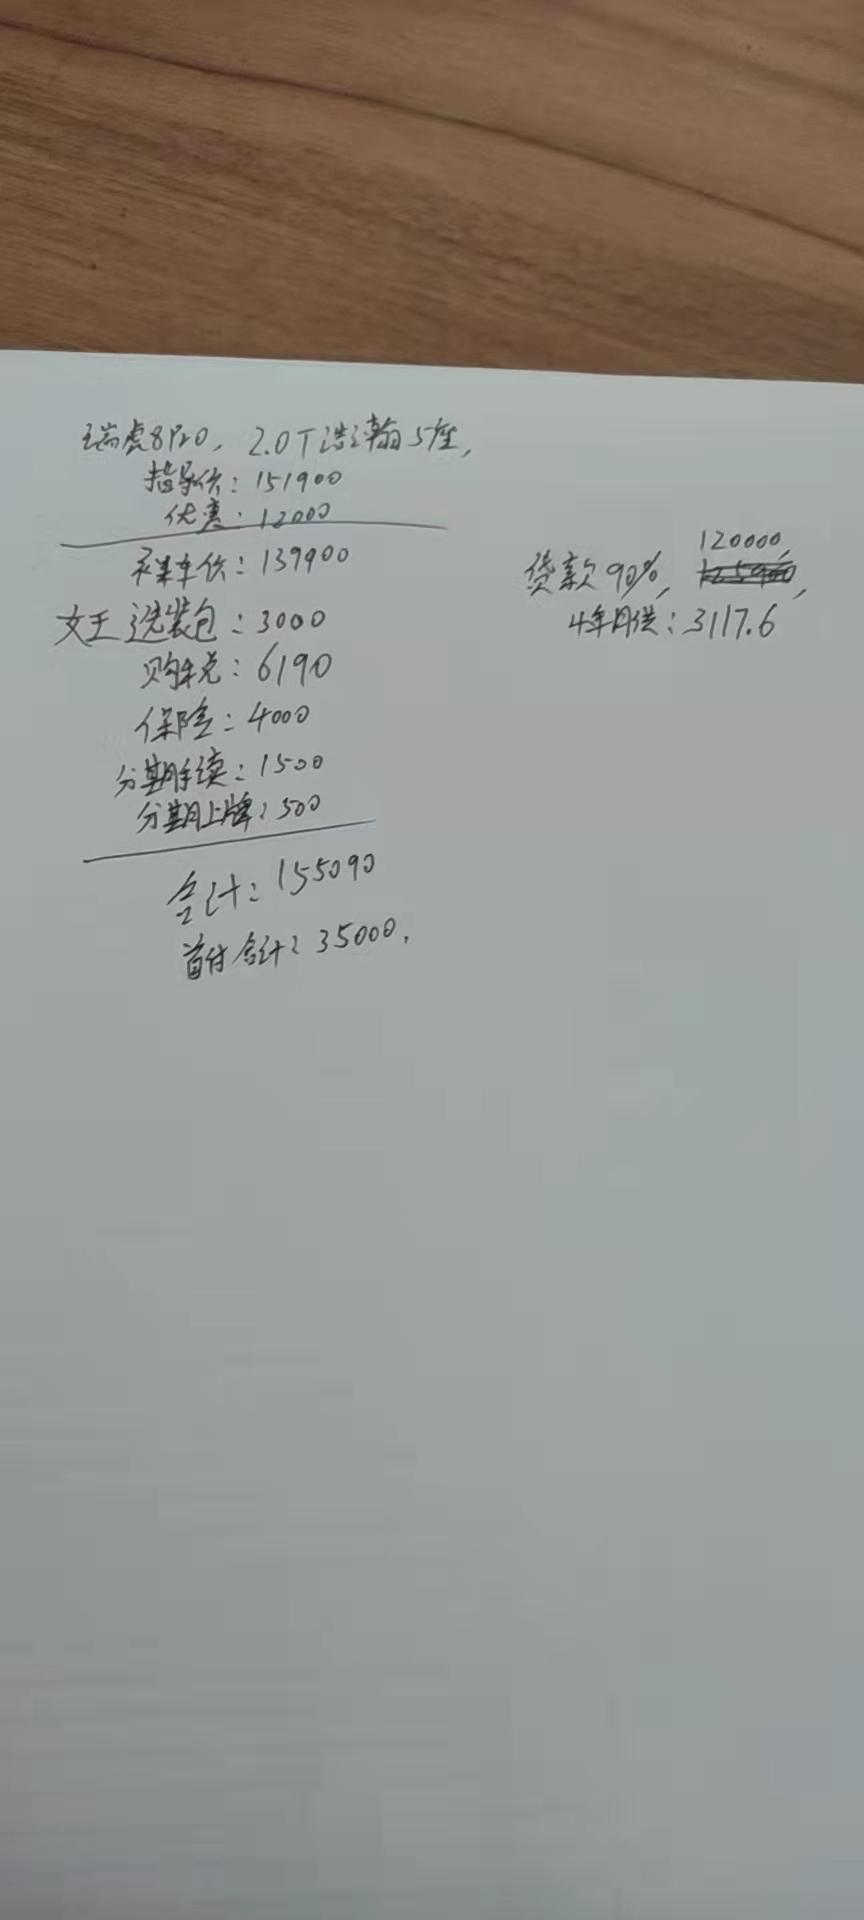 瑞虎8Pro, 2.0T浩瀚5座,
指导价: 151900
优惠: 12000
裸车价: 139900
女王 选装包: 3000
购税: 6190
保险: 4000
分期手续: 1500
分期上牌: 500
合计: 155090
首付合计: 35000.
120000,
贷款90%, 125900,
4年月供: 3117.6